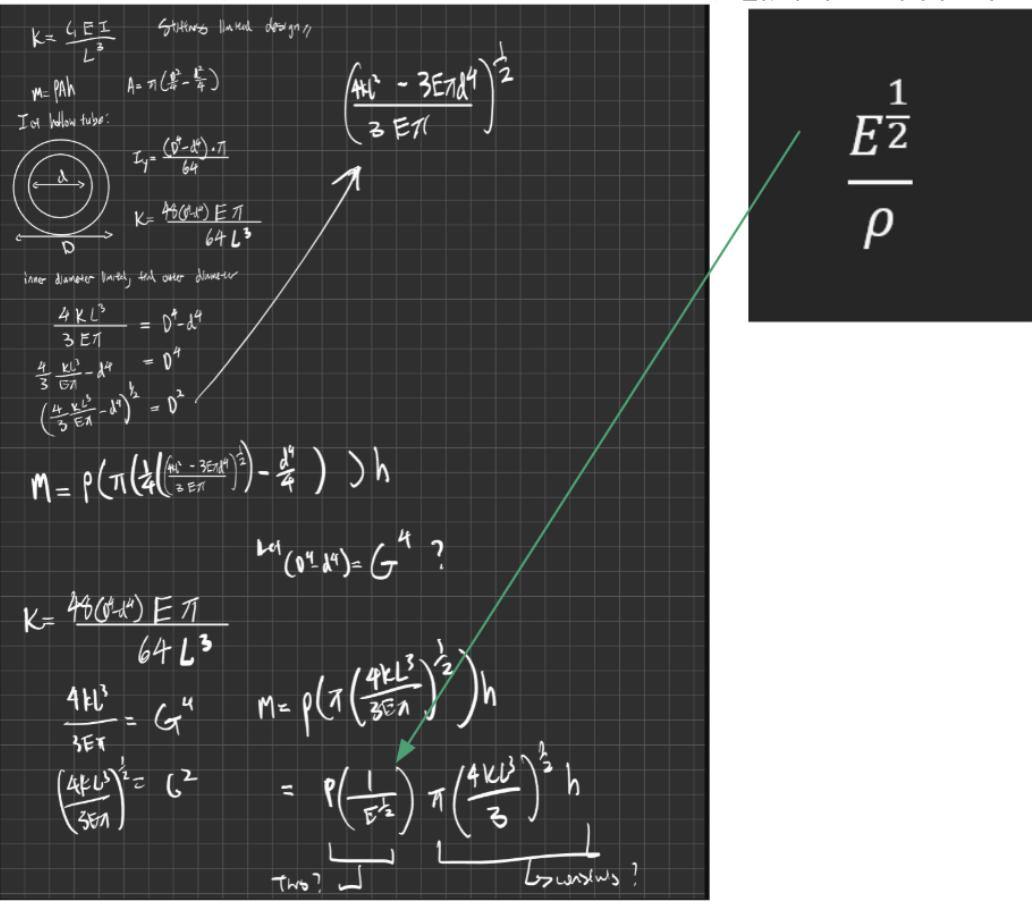 K = CEI / L³ Stiffness limited design,,
m = ρAh A = π(D²/4 - d²/4)
I of hollow tube:
d
D
I_y = (D⁴-d⁴)·π / 64
K = 48(D⁴-d⁴) E π / 64 L³
inner diameter limited, find outer diameter
4KL³ / 3Eπ = D⁴-d⁴
4/3 KL³/Eπ - d⁴ = D⁴
(4/3 KL³/Eπ - d⁴)^½ = D²
((4kl³ - 3Eπd⁴) / 3Eπ)^½
m = ρ(π(¼(((4kl³ - 3Eπd⁴) / 3Eπ)^½) - d⁴/4))h
Let (D⁴-d⁴) = G⁴ ?
K = 48(D⁴-d⁴) E π / 64 L³
4kl³ / 3Eπ = G⁴
(4kL³ / 3Eπ)^½ = G²
m = ρ(π(4kL³ / 3Eπ)^½)h
= ρ(1 / E^½) π(4kL³ / 3)^½ h
This?
E^½ / ρ